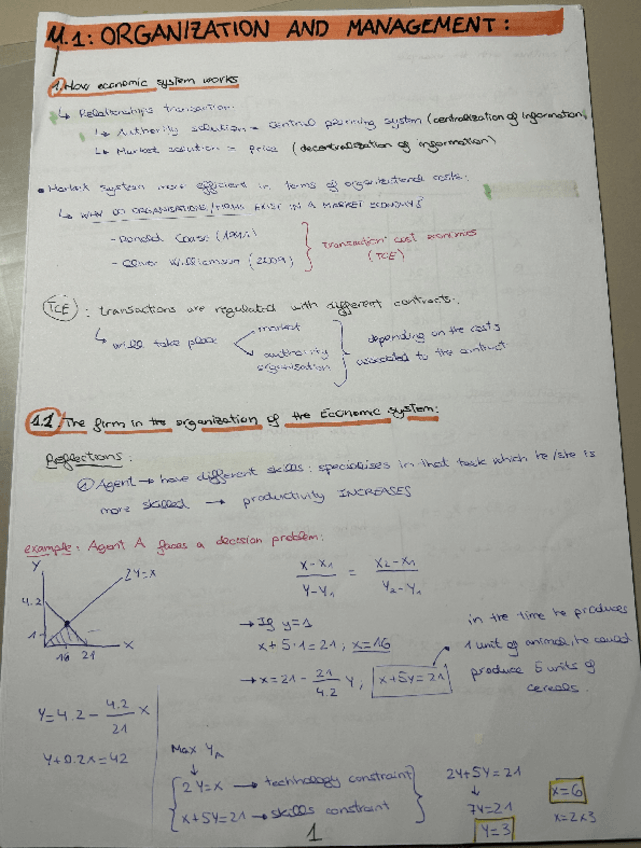 U.1: ORGANIZATION AND MANAGEMENT:
1. How economic system works
↳ Relationships transaction:
↳ Authority solution = central planning system (centralization of information)
↳ Market solution = price (decentralization of information)
• Market system more efficient in terms of organizational costs:
↳ WHY DO ORGANISATIONS/FIRMS EXIST IN A MARKET ECONOMY?
- Ronald Coase (1991)
- Oliver Williamson (2009)
transaction cost economics
(TCE)
TCE : transactions are regulated with different contracts:
↳ will take place
market
authority
organisation
depending on the costs
associated to the contract
1.1. The firm in the organization of the Economic system:
Reflections:
① Agent → have different skills: specialises in that task which he/she is
more skilled → productivity INCREASES
example: Agent A faces a decision problem:
Y
2Y=X
4.2
1
16 21
X
X-X₁ / Y-Y₁ = X₂-X₁ / Y₂-Y₁
→ If y=1
x+5·1=21, x=16
→ x=21 - 21/4.2 Y, x+5Y=21
in the time he produces
1 unit of animal, he could
produce 5 units of
cereals.
Y=4.2 - 4.2/21 X
Y+0.2X=42
Max Y_A
↓
2Y=X → technology constraint
X+5Y=21 → skills constraint
2Y+5Y=21
↓
7Y=21
Y=3
X=6
X=2×3
1